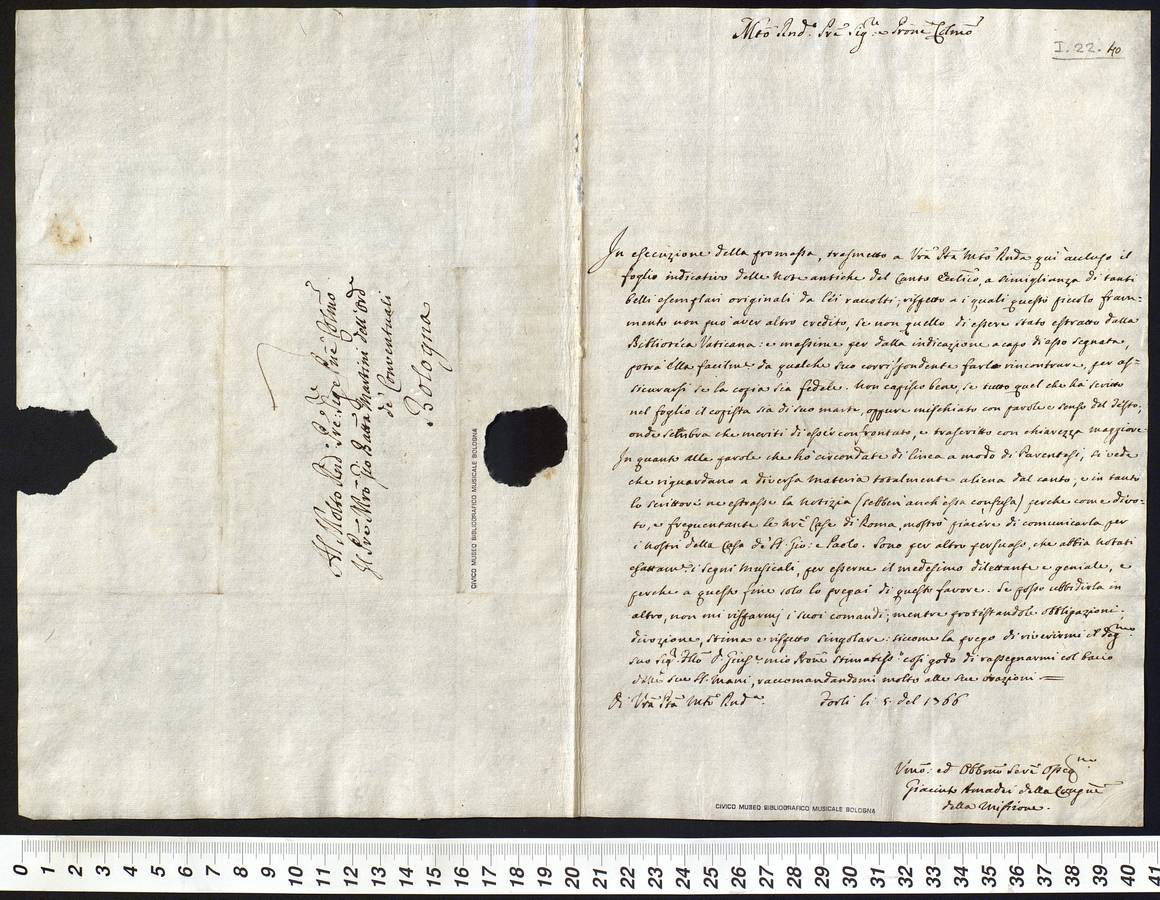 Al Molto Rndo Pre Sigre Pne Colmo
Il Pre Mro Gio Batta Martini dell'Ord
de' Conventuali
Bologna
CIVICO MUSEO BIBLIOGRAFICO MUSICALE BOLOGNA
Mto Rndo Pre Sigre e Prone Colmo
I.22.40
In esecuzione della promessa, trasmetto a Vra Pta Mto Rnda qui accluso il
foglio indicativo delle Note antiche del Canto Eccltico, a simiglianza di tanti
belli esemplari originali da lei raccolti; rispetto a i quali questo picolo fram=
mento non può aver altro credito, se non quello di essere stato estratto dalla
Biblioteca Vaticana: e massime per dalla indicazione a capo di esso segnata,
potrà Ella facilme da qualche suo corrispondente farlo rincontrare, per as=
sicurarsi se la copia sia fedele. Non capisco bene, se tutto quel che ha scritto
nel foglio il copista sia di suo marte, oppure mischiato con parole e senso del Testo;
onde sembra che meriti di esser confrontato, e trascritto con chiarezza maggiore.
In quanto alle parole che ho circondate di linea a modo di Parentesi, si vede
che riguardano a diversa materia totalmente aliena dal canto, e in tanto
lo scrittore ne estrasse la notizia (sebben anch'essa confusa) perche come divo=
to, e frequentante le nre Case di Roma, mostrò piacere di comunicarla per
i nostri della Casa de' SS. Gio: e Paolo. Sono per altro persuaso, che abbia notati
esattame i segni Musicali, per esserne il medesimo dilettante e geniale, e
perche a questo fine solo lo pregai di questo favore. Se posso ubbidirla in
altro, non mi risparmj i suoi comandi; mentre protestandole obbligazioni,
divozione, stima e rispetto singolare: siccome la prego di riverirmi il degmo
suo Sigr D. Gius.e mio Prone stimatisso così godo di rassegnarmi col bacio
delle sue SS. Mani, raccomandandomi molto alle sue orazioni =
Di Vra Pta Mto Rnda Forlì li 5. del 1766
Vmo: ed Obbmo Serv Ossequ mo
Giacinto Amadei della Congne
della Missione.
CIVICO MUSEO BIBLIOGRAFICO MUSICALE BOLOGNA
0 1 2 3 4 5 6 7 8 9 10 11 12 13 14 15 16 17 18 19 20 21 22 23 24 25 26 27 28 29 30 31 32 33 34 35 36 37 38 39 40 41